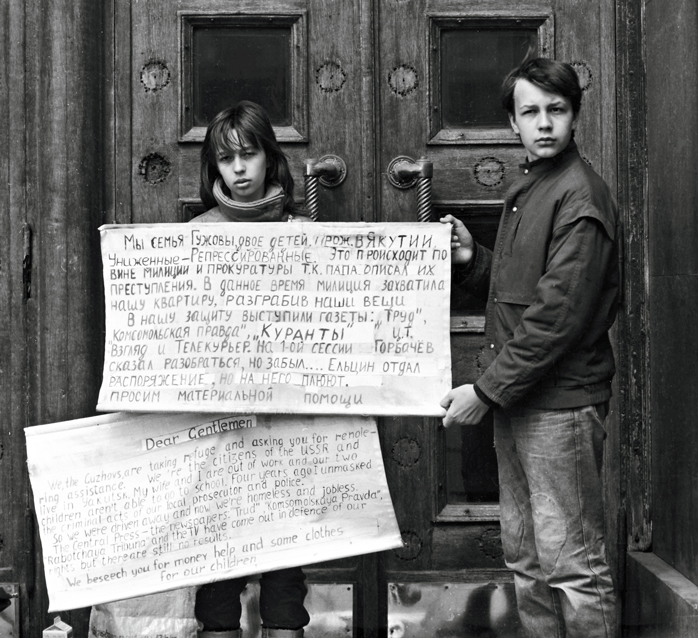 Мы семья Гужовы, двое детей, прож. в Якутии,
Униженные–Репрессированные. Это происходит по
вине милиции и прокуратуры т.к. папа описал их
преступления. В данное время милиция захватила
нашу квартиру, разграбив наши вещи
В нашу защиту выступили газеты: „Труд",
„Комсомольская правда", „Куранты" „ц.т.
"Взгляд и Телекурьер. На 1-ой сессии Горбачёв
сказал разобраться, но забыл.... Ельцин отдал
распоряжение, но на него плюют.
просим материальной помощи
Dear Gentlemen
We, the Guzhovs, are taking refuge and asking you for rende-
ring assistance. We're the citizens of the USSR and
live in Jakutsk. My wife and I are out of work and our two
children aren't able to go to school. Four years ago I unmasked
the criminal acts of our local prosecutor and police.
So we were driven away and now we're homeless and jobless.
The Central Press – the newspapers "Trud" "Komsomolskaya Pravda",
"Rabotchaya Tribuna" and the TV have come out in defence of our
rights, but there are still no results.
We beseech you for money help and some clothes
for our children